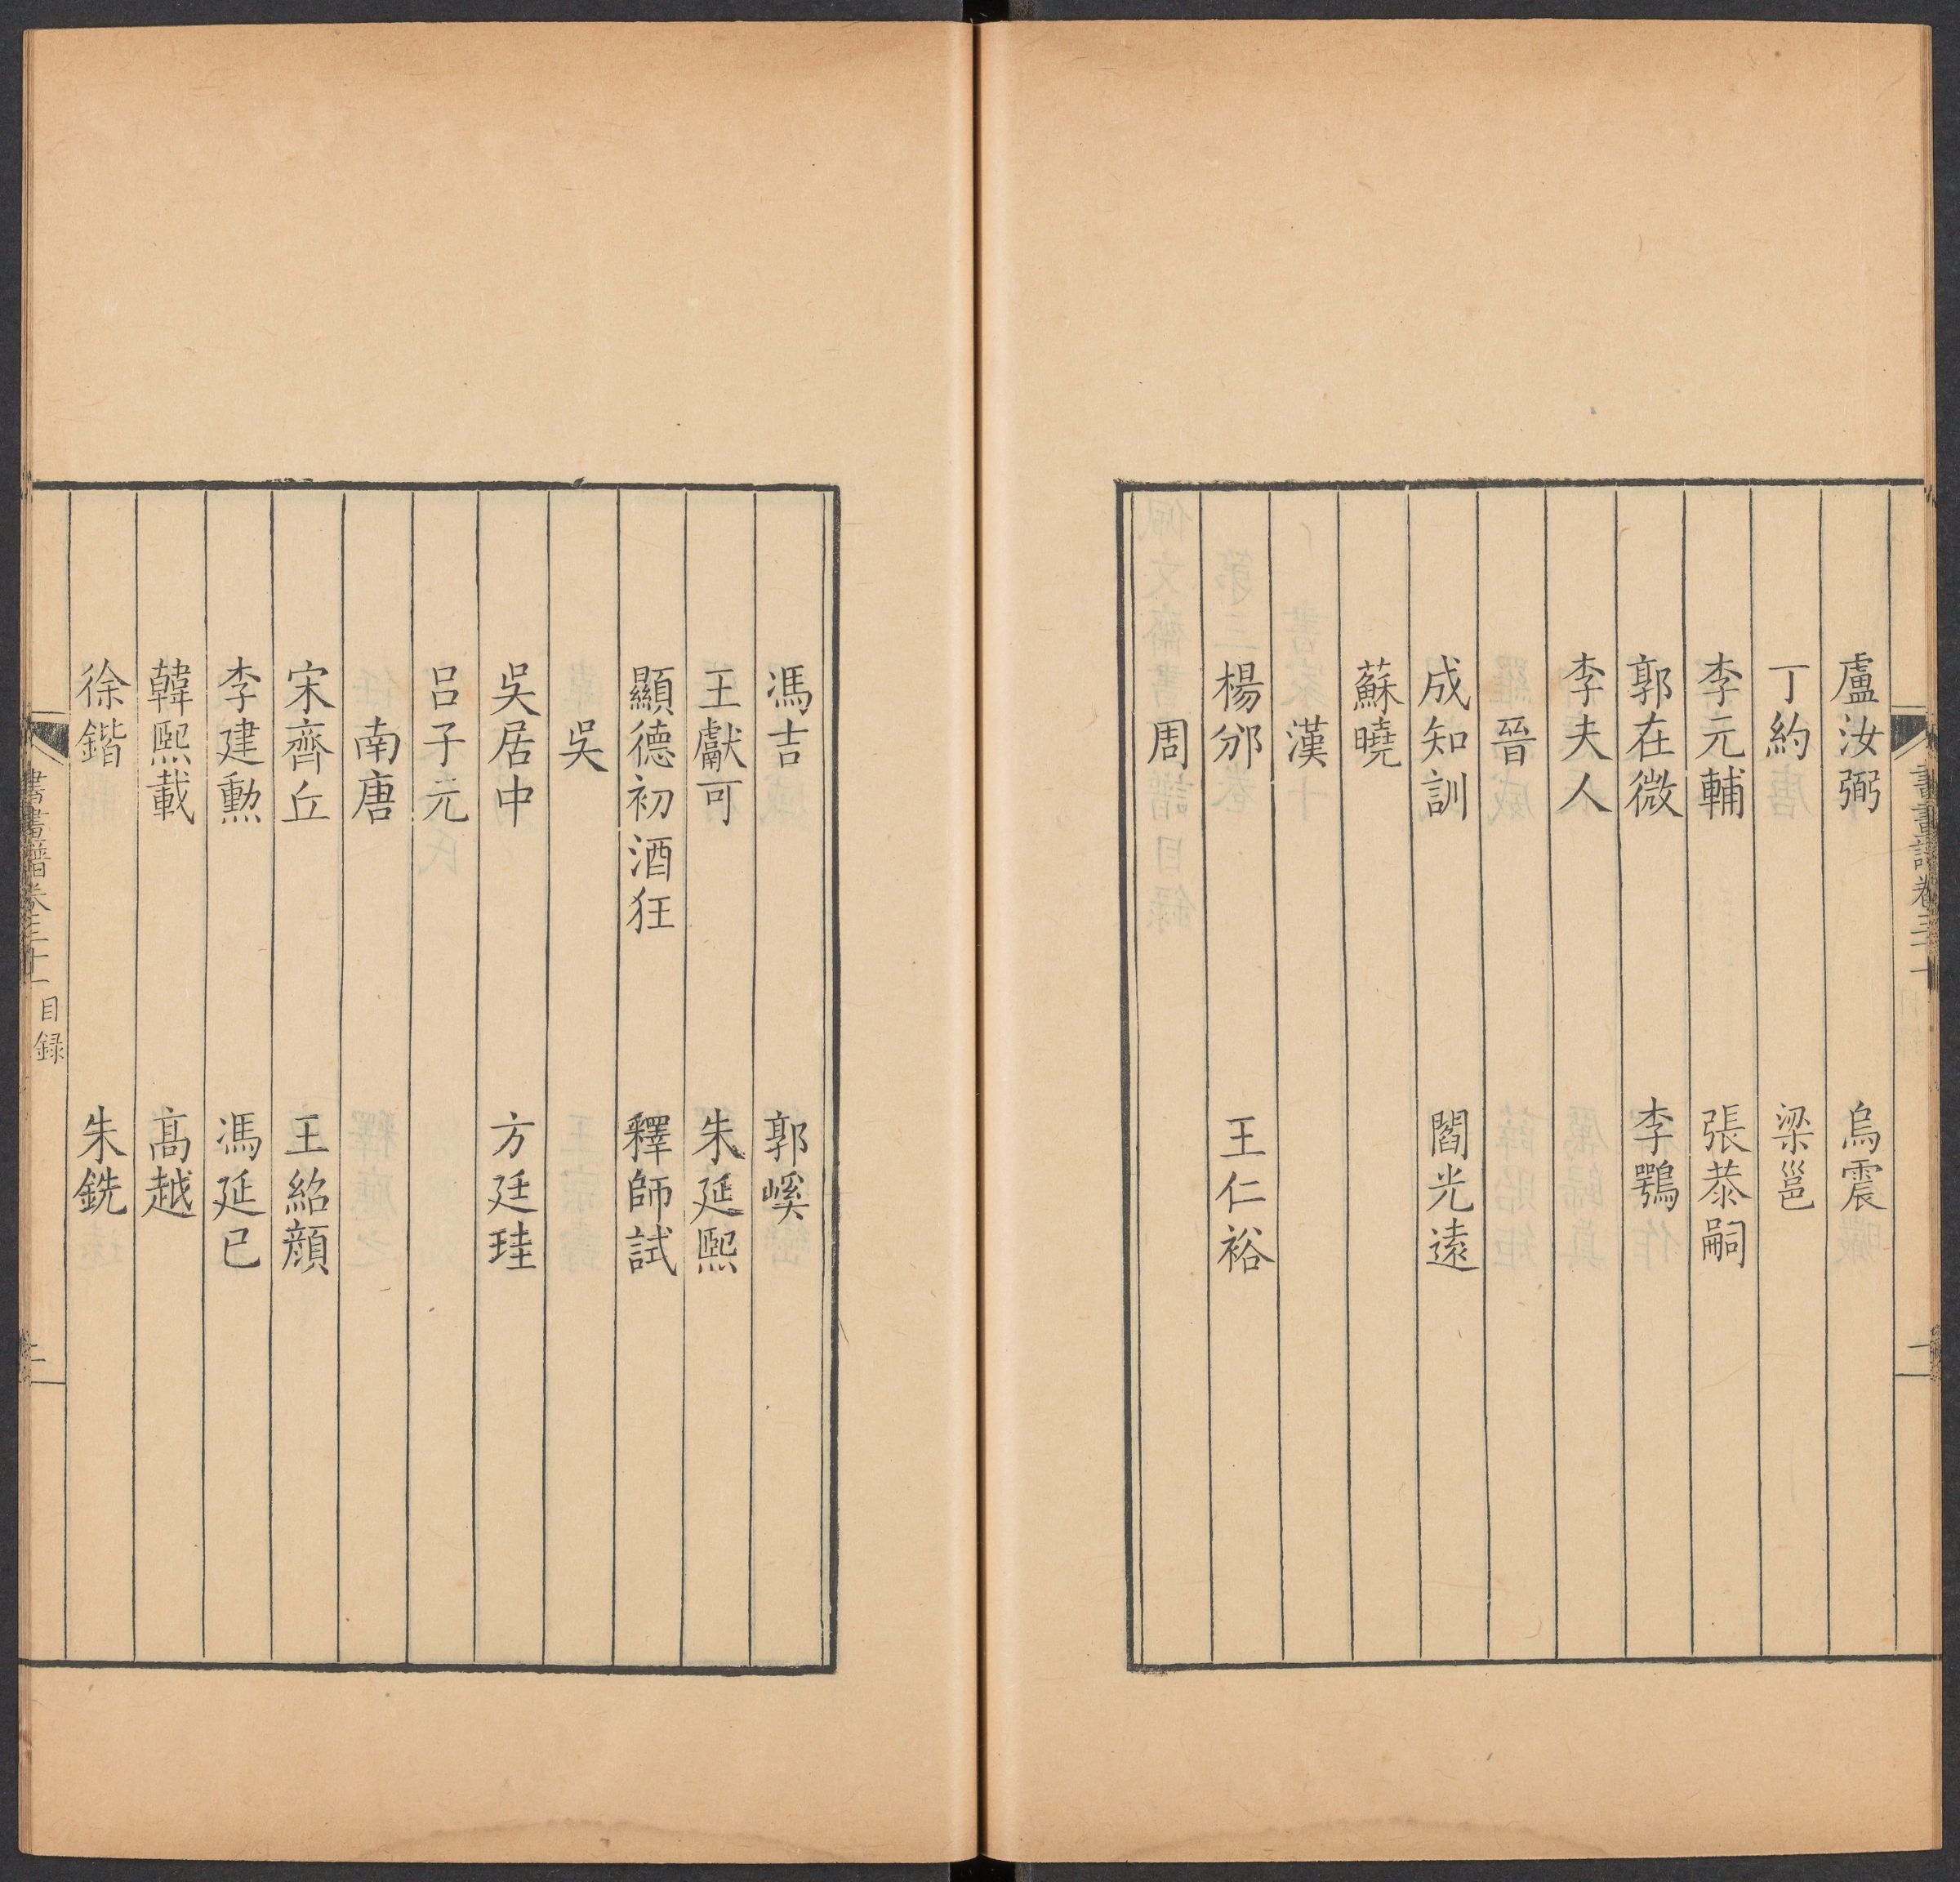 盧汝弼 烏震
丁約 梁邕
李元輔 張㳟嗣
郭在微 李鶚
李夫人
晉
成知訓 閻光遠
蘇曉
漢
楊邠 王仁裕
周
馮吉 郭崾
王獻可 朱延熙
顯德初酒狂 釋師試
吳
吳居中 方廷珪
呂子元
南唐
宋齊丘 王紹顔
李建勲 馮延已
韓熙載 髙越
徐鍇 朱銑
書畫譜卷三十一
目録
二